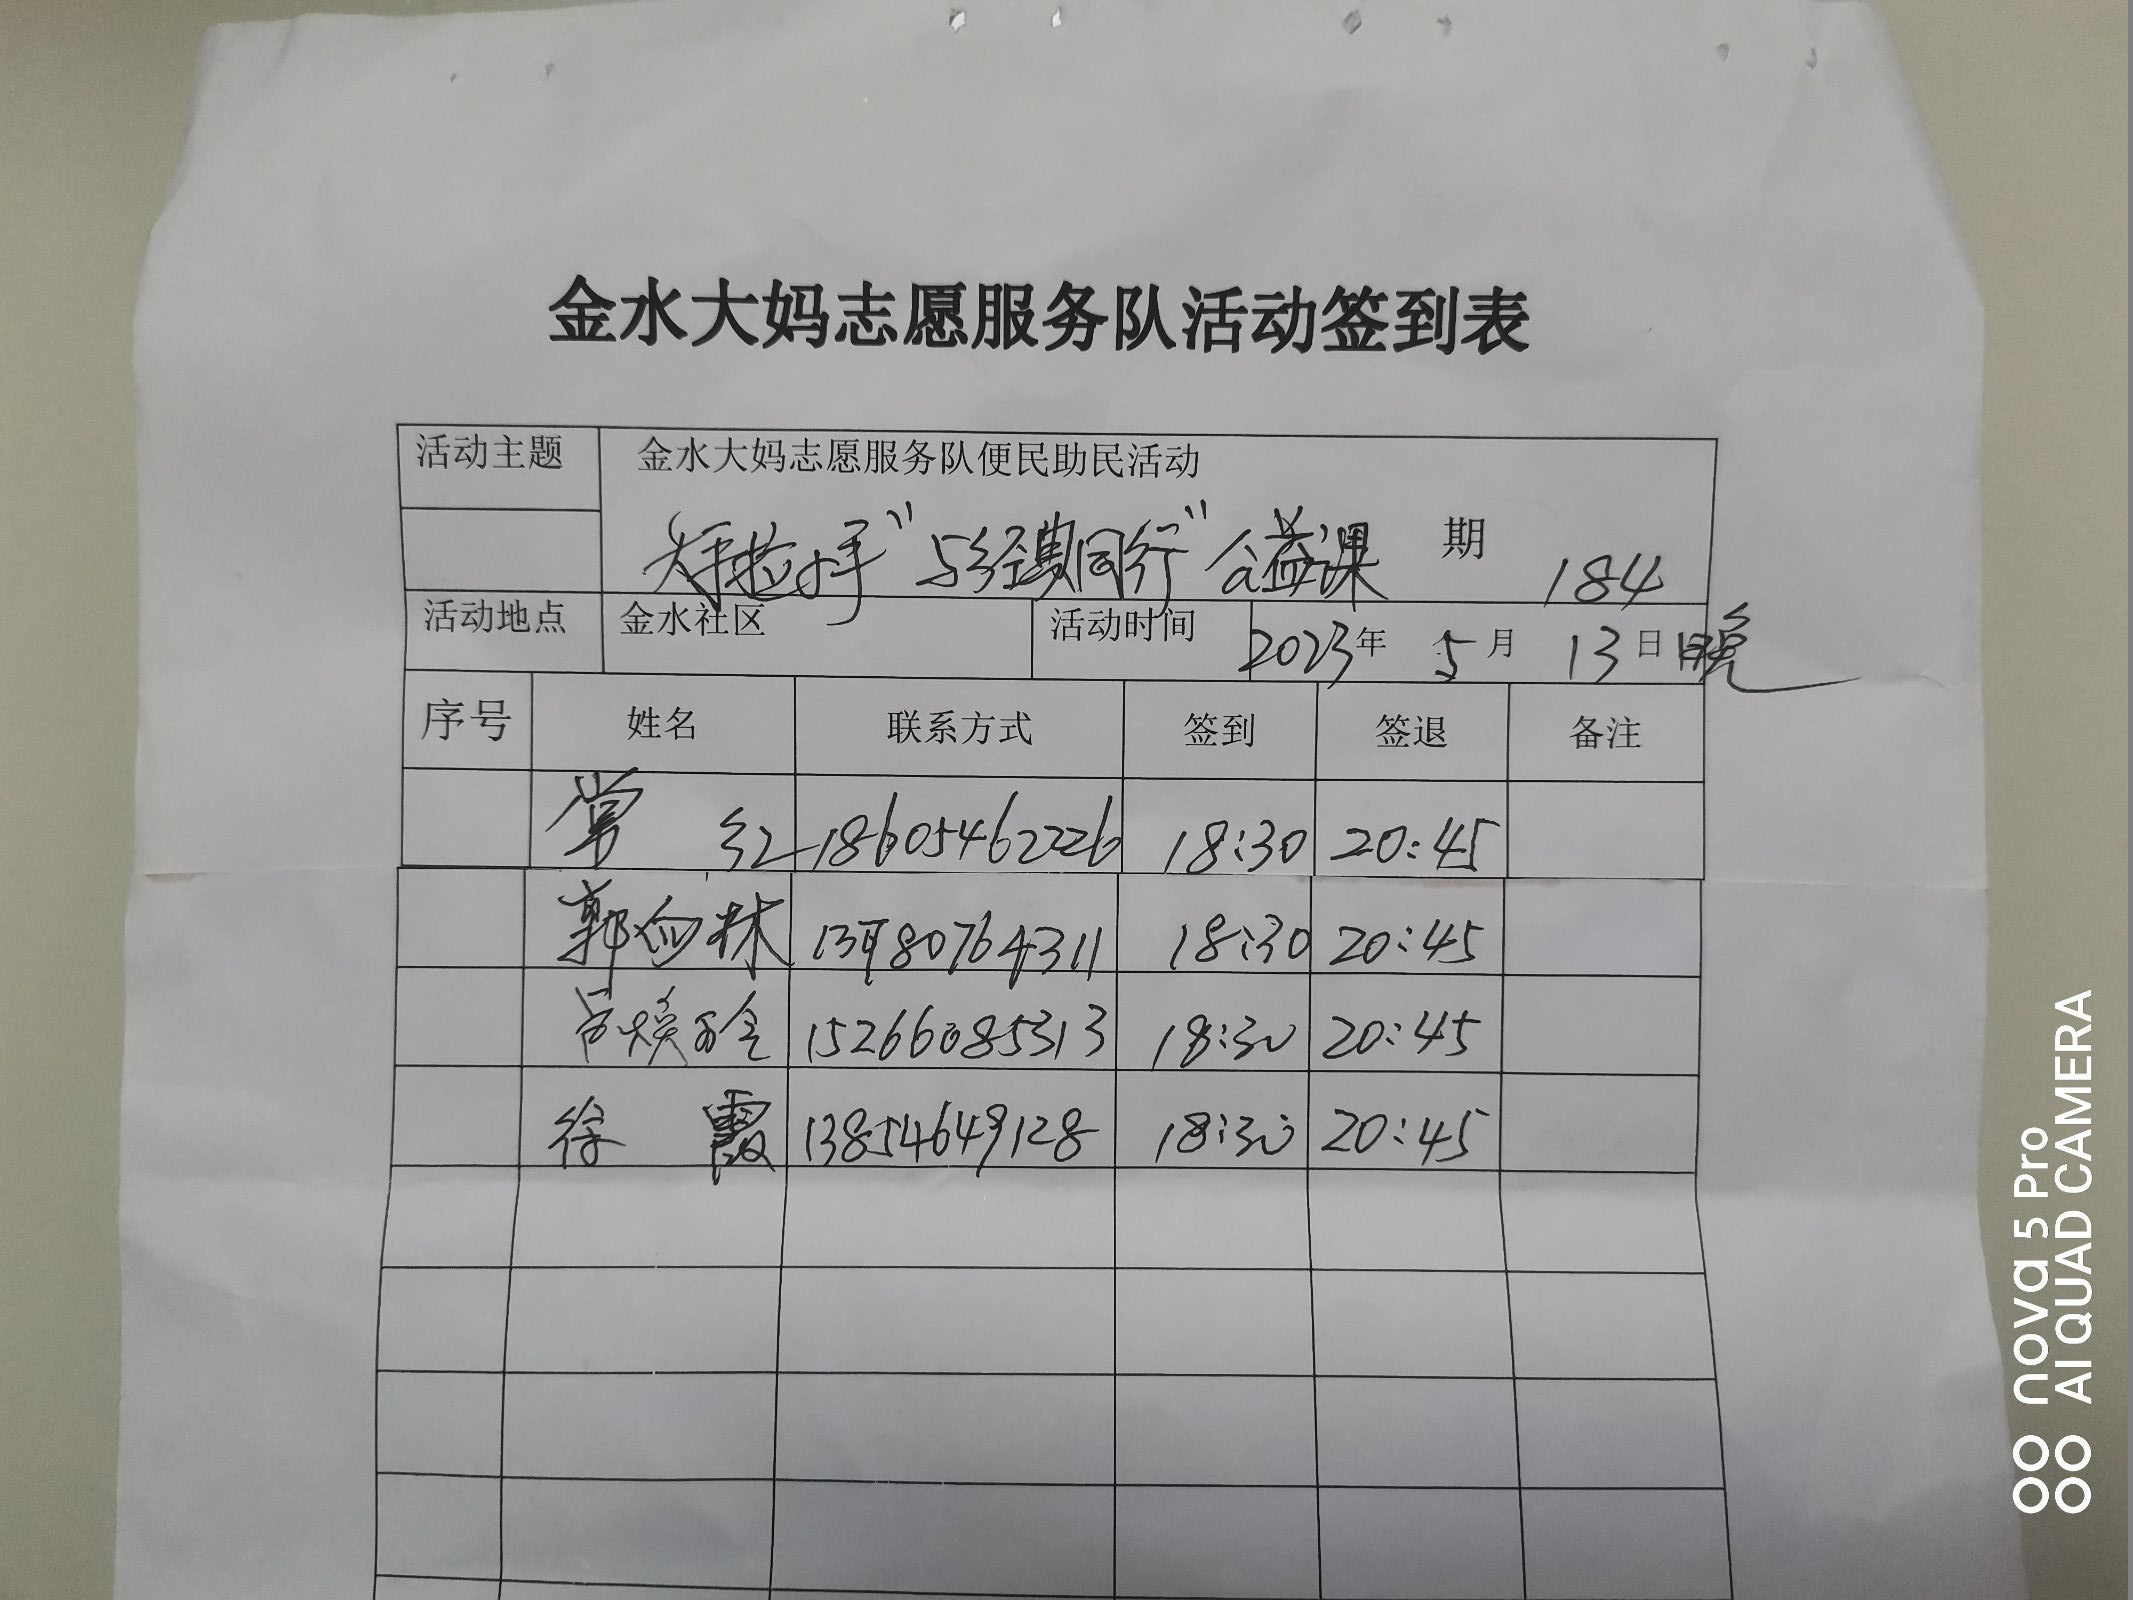 金水大妈志愿服务队活动签到表
活动主题 金水大妈志愿服务队便民助民活动
大手拉小手"与经典同行"公益课 期 184
活动地点 金水社区 活动时间 2023年 5月 13日晚
序号 姓名 联系方式 签到 签退 备注
常 红 18605462226 18:30 20:45
郭 林 18:30 20:45
15266085313 18:30 20:45
徐 霞 13854649128 18:30 20:45
nova 5 Pro
AI QUAD CAMERA